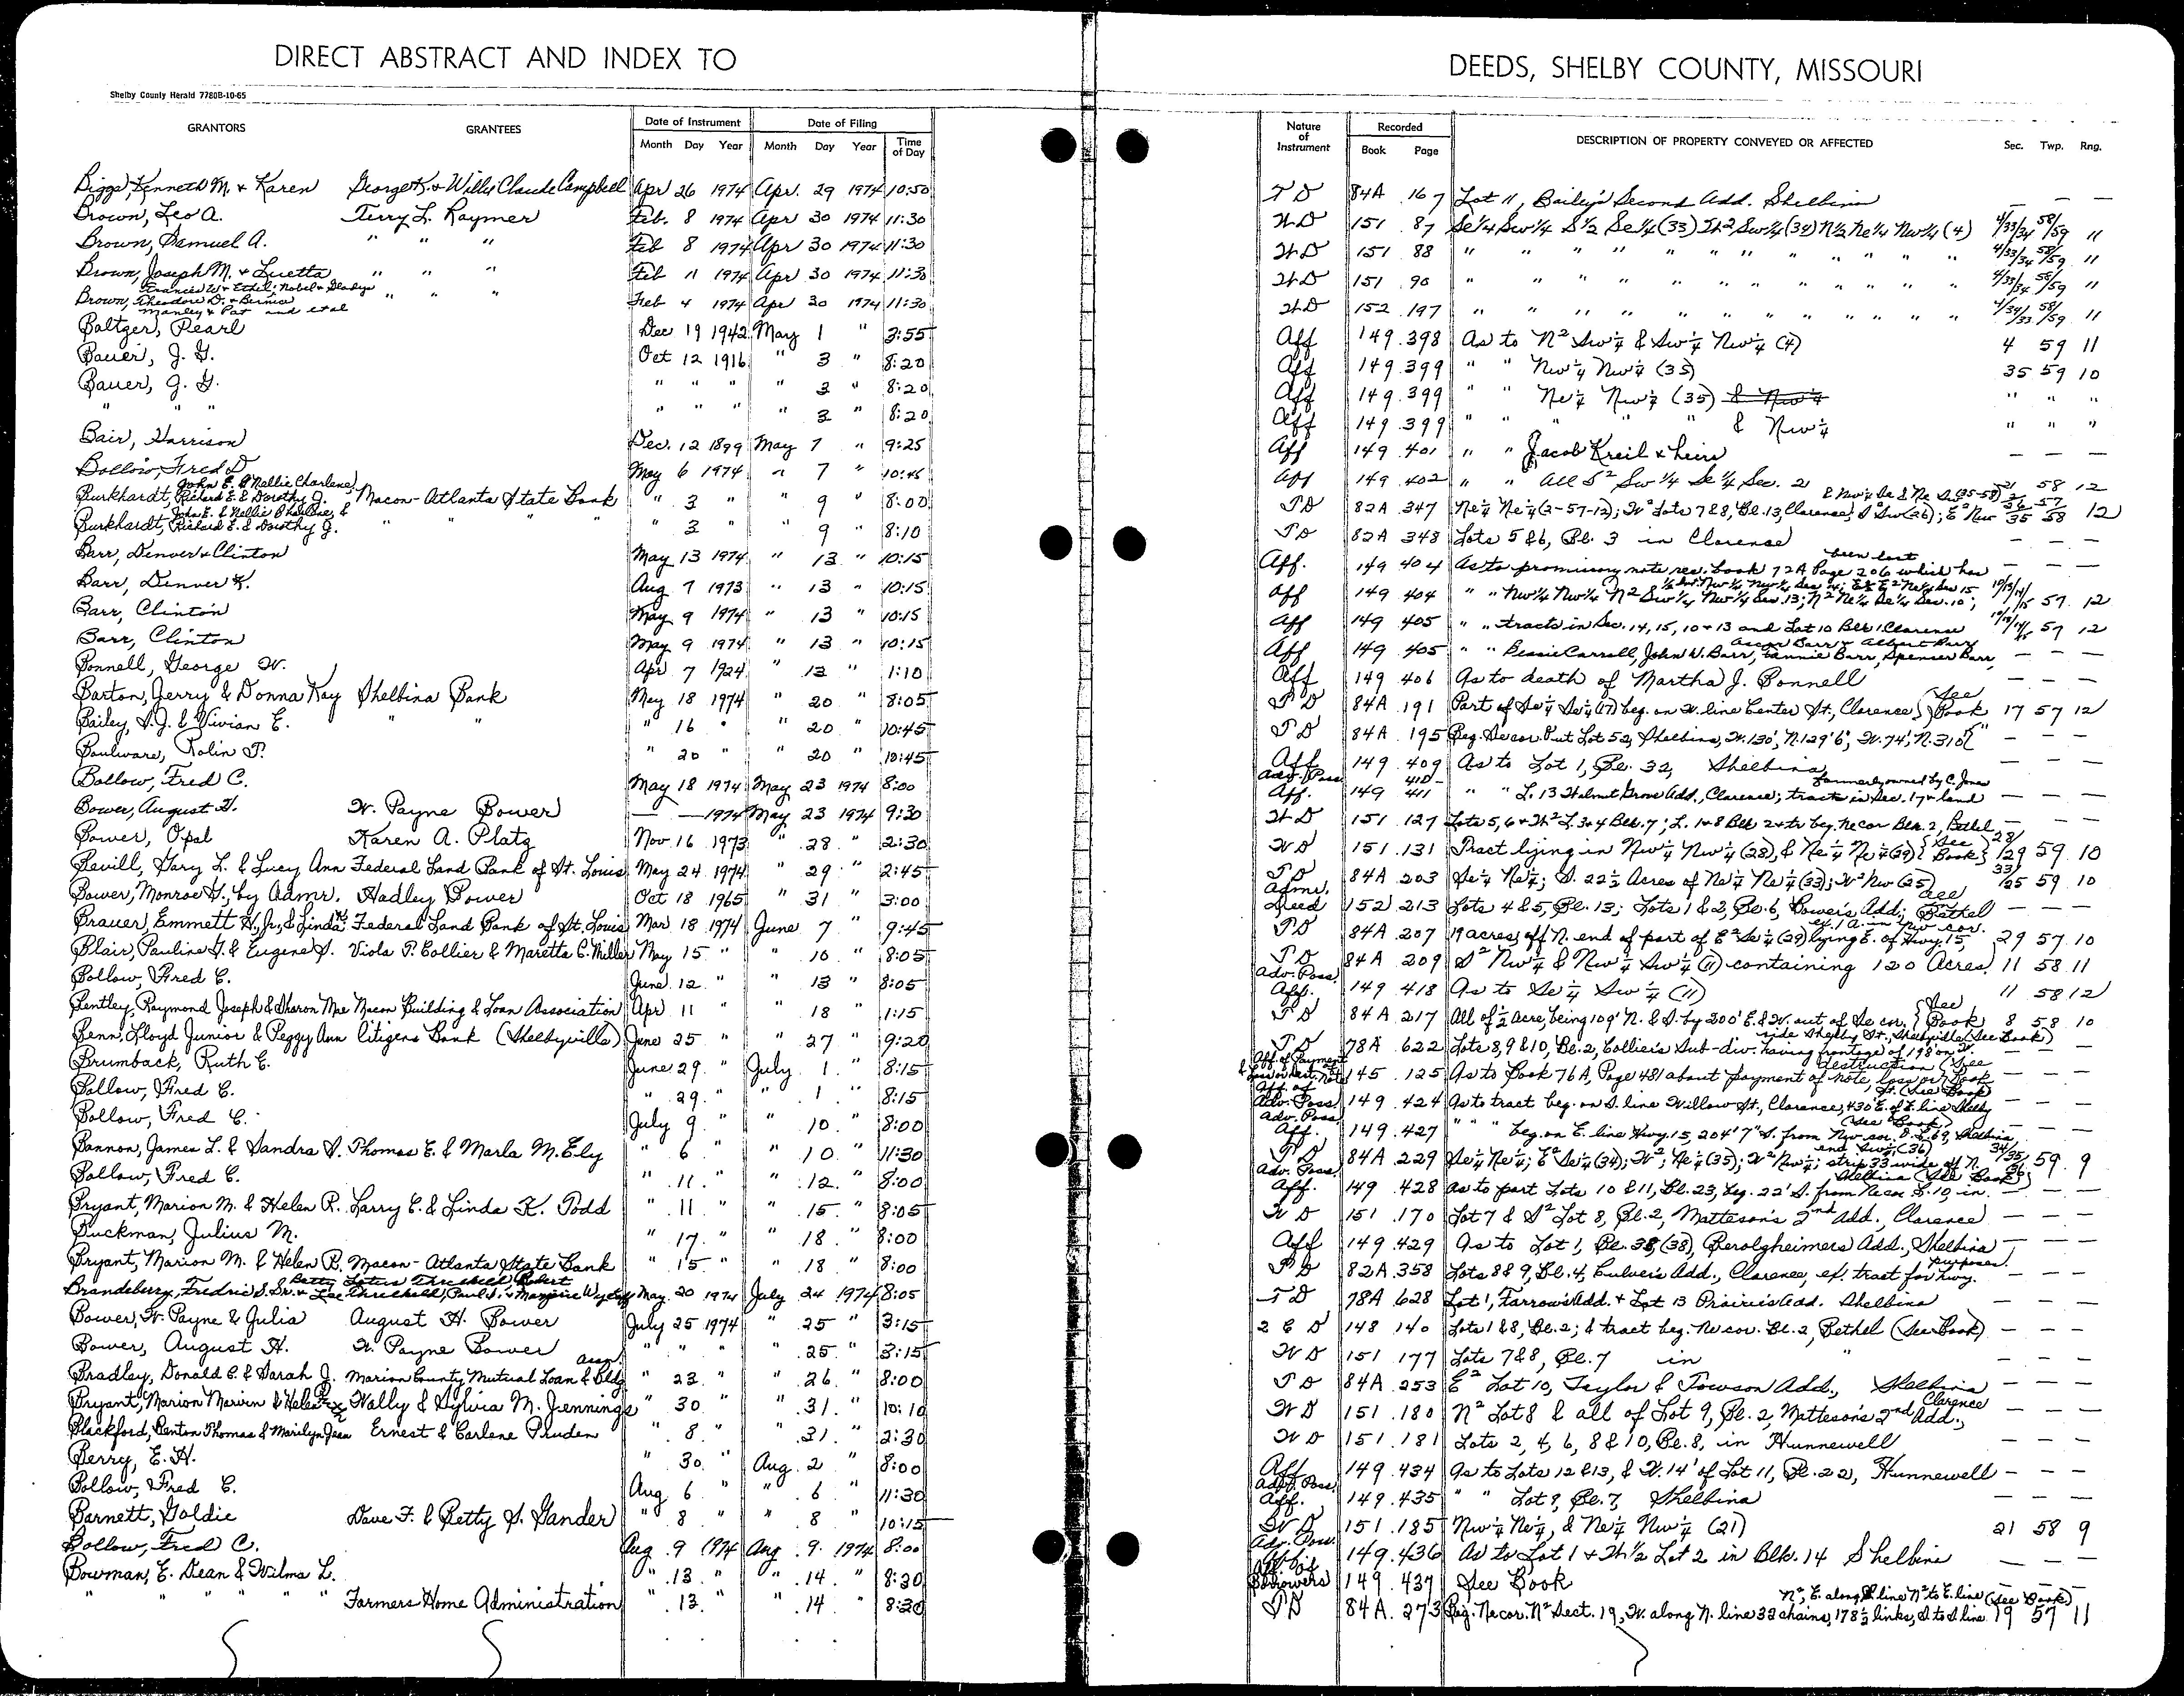 DIRECT ABSTRACT AND INDEX TO DEEDS, SHELBY COUNTY, MISSOURI
Shelby County Herald 7780B-10-65
GRANTORS GRANTEES Date of Instrument Month Day Year Date of Filing Month Day Year Time of Day Nature of Instrument Recorded Book Page DESCRIPTION OF PROPERTY CONVEYED OR AFFECTED Sec. Twp. Rng.
Biggs, Kenneth M. & Karen George K. & Willy Claude Campbell Apr 26 1974 Apr. 29 1974 10:50 T D 84A 167 Lot 11, Bailey's Second Add. Shelbina — — —
Brown, Leo A. Terry L. Raymer Feb. 8 1974 Apr 30 1974 11:30 W D 151 87 Se¼ Sw¼ S½ Se¼ (33) W2 Sw¼ (34) N½ Ne¼ Nw¼ (4) 4/33/34 58/59 11
Brown, Samuel A. " " " Feb 8 1974 Apr 30 1974 11:30 W D 151 88 " " " " " " " " " " 4/33/34 58/59 11
Brown, Joseph M. & Luetta " " " Feb 11 1974 Apr 30 1974 11:30 W D 151 90 " " " " " " " " " " 4/33/34 58/59 11
Frances W & Ethel; Nobel & Gladys
Brown, Theodore D. & Bernice " " " Feb 4 1974 Apr 30 1974 11:30 W D 152 197 " " " " " " " " " " 4/34/33 58/59 11
Manley & Pat and et al
Baltzer, Pearl Dec 19 1942 May 1 " 3:55 Aff 149 398 As to N² Sw¼ & Sw¼ Nw¼ (4) 4 59 11
Bauer, J. G. Oct 12 1916 " 3 " 8:20 Aff 149 399 " " Nw¼ Nw¼ (35) 35 59 10
Bauer, J. G. " " " " 3 " 8:20 Aff 149 399 " " Ne¼ Nw¼ (35) & Nw¼ " " "
" " " " " " " 3 " 8:20 Aff 149 399 " " " " " & Nw¼ " " "
Bair, Harrison Dec. 12 1899 May 7 " 9:25 Aff 149 401 " " Jacob Kreil & heirs — — —
Bollow, Fred D May 6 1974 " 7 " 10:45 Aff 149 402 " " All S² Sw¼ Se¼ Sec. 21 21 58 12
John E. & Nellie Charlene,
Burkhardt, Richard E. & Dorothy J. Macon-Atlanta State Bank " 3 " " 9 " 8:00 T D 82A 347 Ne¼ Ne¼ (2-57-12); W² Lots 7&8, Bl. 13, Clarence; 35 58 12
John E. & Nellie Charlene, &
Burkhardt, Richard E. & Dorothy J. " " " " 3 " 9 8:10 T D 82A 348 Lots 5 & 6, Bl. 3 in Clarence — — —
Barr, Denver & Clinton May 13 1974 " 13 " 10:15 Aff. 149 404 As to promissory note rec. book 72A Page 206 which has been lost — — —
Barr, Denver K. Aug 7 1973 " 13 " 10:15 Aff 149 404 " " Nw¼ Nw¼ N² Sw¼ Nw¼ Sec. 13; N² Ne¼ Se¼ Sec. 10; 57 12
Barr, Clinton May 9 1974 " 13 " 10:15 Aff 149 405 " " tracts in Sec. 14, 15, 10 & 13 and Lot 10 Blk 1 Clarence 57 12
Barr, Clinton May 9 1974 " 13 " 10:15 Aff 149 405 " " Bessie Carroll, John W. Barr, Fannie Barr, Spencer Barr, Oscar Barr & Albert Barr — — —
Bonnell, George W. Apr 7 1924 " 13 " 1:10 Aff 149 406 As to death of Martha J. Bonnell — — —
Barton, Jerry & Donna Kay Shelbina Bank May 18 1974 " 20 " 8:05 T D 84A 191 Part of Se¼ Se¼ (17) beg. on W. line Center St., Clarence (See Book) 17 57 12
Bailey, S. J. & Vivian E. " " " 16 " " 20 " 10:45 T D 84A 195 Beg. Se cor. Out Lot 52, Shelbina, W. 130', N. 129'6", W. 74', N. 310' " — — —
Boulware, Rolin T. " 20 " " 20 " 10:45 Aff 149 409 As to Lot 1, Bl. 32, Shelbina — — —
Bollow, Fred C. May 18 1974 May 23 1974 8:00 Adv. Poss. Aff. 149 410-411 " " L. 13 Walnut Grove Add., Clarence; tracts in Sec. 17 & land formerly owned by C. Jones — — —
Bower, August H. W. Payne Bower — — 1974 May 23 1974 9:30 W D 151 127 Lots 5, 6 & W² L. 3 & 4 Blk. 7; L. 1 & 8 Blk 2 & tr beg. Ne cor Blk. 2, Bethel — — —
Bower, Opal Karen A. Platz Nov 16 1973 " 28 " 2:30 W D 151 131 Tract lying in Nw¼ Nw¼ (28), & Ne¼ Ne¼ (29) (See Book) 28/29 59 10
Bevill, Gary L. & Lucy Ann Federal Land Bank of St. Louis May 24 1974 " 29 " 2:45 T D 84A 203 Se¼ Ne¼; S. 22½ Acres of Ne¼ Ne¼ (33); W² Nw (25) 33/25 59 10
Bower, Monroe H., by Admr. Hadley Bower Oct 18 1965 " 31 " 3:00 Admr. Deed 152 213 Lots 4 & 5, Bl. 13; Lots 1 & 2, Bl. 6, Bower's Add; all Bethel — — —
Brauer, Emmett H., Jr., & Linda Federal Land Bank of St. Louis Mar 18 1974 June 7 " 9:45 T D 84A 207 19 acres, off N. end of part of E² Se¼ (29) lying E. of Hwy. 15, ex. 1 a. in Nw cor. 29 57 10
Blair, Pauline G. & Eugene S. Viola P. Collier & Maretta C. Miller May 15 " " 10 " 8:05 T D 84A 209 S² Nw¼ & Nw¼ Sw¼ (11) containing 120 Acres 11 58 11
Bollow, Fred C. June 12 " " 13 " 8:05 Adv. Poss. Aff. 149 418 As to Se¼ Sw¼ (11) 11 58 12
Bentley, Raymond Joseph & Sharon Mae Macon Building & Loan Association Apr 11 " " 18 " 1:15 T D 84A 217 All of ½ Acre, being 109' N. & S. by 200' E. & W. out of Se cor. (See Book) 8 58 10
Benn, Lloyd Junior & Peggy Ann Citizens Bank (Shelbyville) June 25 " " 27 " 9:20 T D 78A 622 Lots 8, 9 & 10, Bl. 2, Collier's Sub-div. having frontage of 198' on W. side Shelby St., Shelbyville (See Book) — — —
Brumback, Ruth E. June 29 " July 1 " 8:15 Aff. of Payment 145 125 As to Book 76A, Page 481 about payment of note, loss or destruction (See Book) — — —
Bollow, Fred C. " 29 " " 1 " 8:15 Aff of Adv. Poss. 149 424 As to tract beg. on S. line Willow St., Clarence, 430' E. of E. line Shelby St. (See Book) — — —
Bollow, Fred C. July 9 " " 10 " 8:00 Adv. Poss. Aff. 149 427 " " " beg. on E. line Hwy. 15, 204'7" S. from Nw cor. O. L. 69, Shelbina (See Book) — — —
Bannon, James L. & Sandra S. Thomas E. & Marla M. Ely " 6 " " 10 " 11:30 T D 84A 229 Se¼ Ne¼; E² Se¼ (34); W²; Ne¼ (35); W² Nw¼; strip 33' wide off N. end Sw¼ (36) 34/35/36 59 9
Bollow, Fred C. " 11 " " 12 " 8:00 Adv. Poss. Aff. 149 428 As to part Lots 10 & 11, Bl. 23, beg. 22' S. from Ne cor L. 10, in Shelbina (See Book) — — —
Bryant, Marion M. & Helen R. Larry E. & Linda K. Todd " 11 " " 15 " 8:05 W D 151 170 Lot 7 & S² Lot 8, Bl. 2, Matteson's 2nd Add., Clarence — — —
Buckman, Julius M. " 17 " " 18 " 8:00 Aff 149 429 As to Lot 1, Bl. 38 (38), Berolgheimers Add., Shelbina — — —
Bryant, Marion M. & Helen R. Macon-Atlanta State Bank " 15 " " 18 " 8:00 T D 82A 358 Lots 8 & 9, Bl. 4, Culver's Add., Clarence, ex. tract for hwy. purposes. — — —
Brandeberry, Fredric S. Sr. & May 20 1974 July 24 1974 8:05 T D 78A 628 Lot 1, Farrow's Add. & Lot 13 Prairie's Add. Shelbina — — —
Bower, W. Payne & Julia August H. Bower July 25 1974 " 25 " 3:15 2 C D 148 140 Lots 1 & 8, Bl. 2; & tract beg. Ne cor. Bl. 2, Bethel (See Book) — — —
Bower, August H. W. Payne Bower " " " " 25 " 3:15 W D 151 177 Lots 7 & 8, Bl. 7 in " — — —
Bradley, Donald C. & Sarah J. Marion County Mutual Loan & Bldg Assn. " 23 " " 26 " 8:00 T D 84A 253 E² Lot 10, Taylor & Towson Add., Shelbina — — —
Bryant, Marion Marvin & Helen Wally & Sylvia M. Jennings " 30 " " 31 " 10:10 W D 151 180 N² Lot 8 & all of Lot 9, Bl. 2, Matteson's 2nd Add., Clarence — — —
Blackford, Benton Thomas & Marilyn Jean Ernest & Earlene Pruden " 8 " " 31 " 2:30 W D 151 181 Lots 2, 4, 6, 8 & 10, Bl. 8, in Hunnewell — — —
Berry, E. H. " 30 " Aug. 2 " 8:00 Aff 149 434 As to Lots 12 & 13, & W. 14' of Lot 11, Bl. 22, Hunnewell — — —
Bollow, Fred C. Aug 6 " " 6 " 11:30 Adv. Poss. Aff. 149 435 " " Lot 9, Bl. 7, Shelbina — — —
Barnett, Goldie Dave F. & Betty S. Gander " 8 " " 8 " 10:15 W D 151 185 Nw¼ Ne¼, & Ne¼ Nw¼ (21) 21 58 9
Bollow, Fred C. Aug 9 1974 Aug 9 1974 8:00 Adv. Poss. 149 436 As to Lot 1 & W½ Lot 2 in Blk. 14 Shelbina — — —
Bowman, E. Dean & Wilma L. " 13 " " 14 " 8:30 Borrowers 149 437 See Book — — —
" " " " Farmers Home Administration " 13 " " 14 " 8:30 T D 84A 273 Beg. Ne cor. N² Sect. 19, W. along N. line 32 chains, 178½ links, S to S line N², E. along S line N² to E. line (See Book) 19 57 11